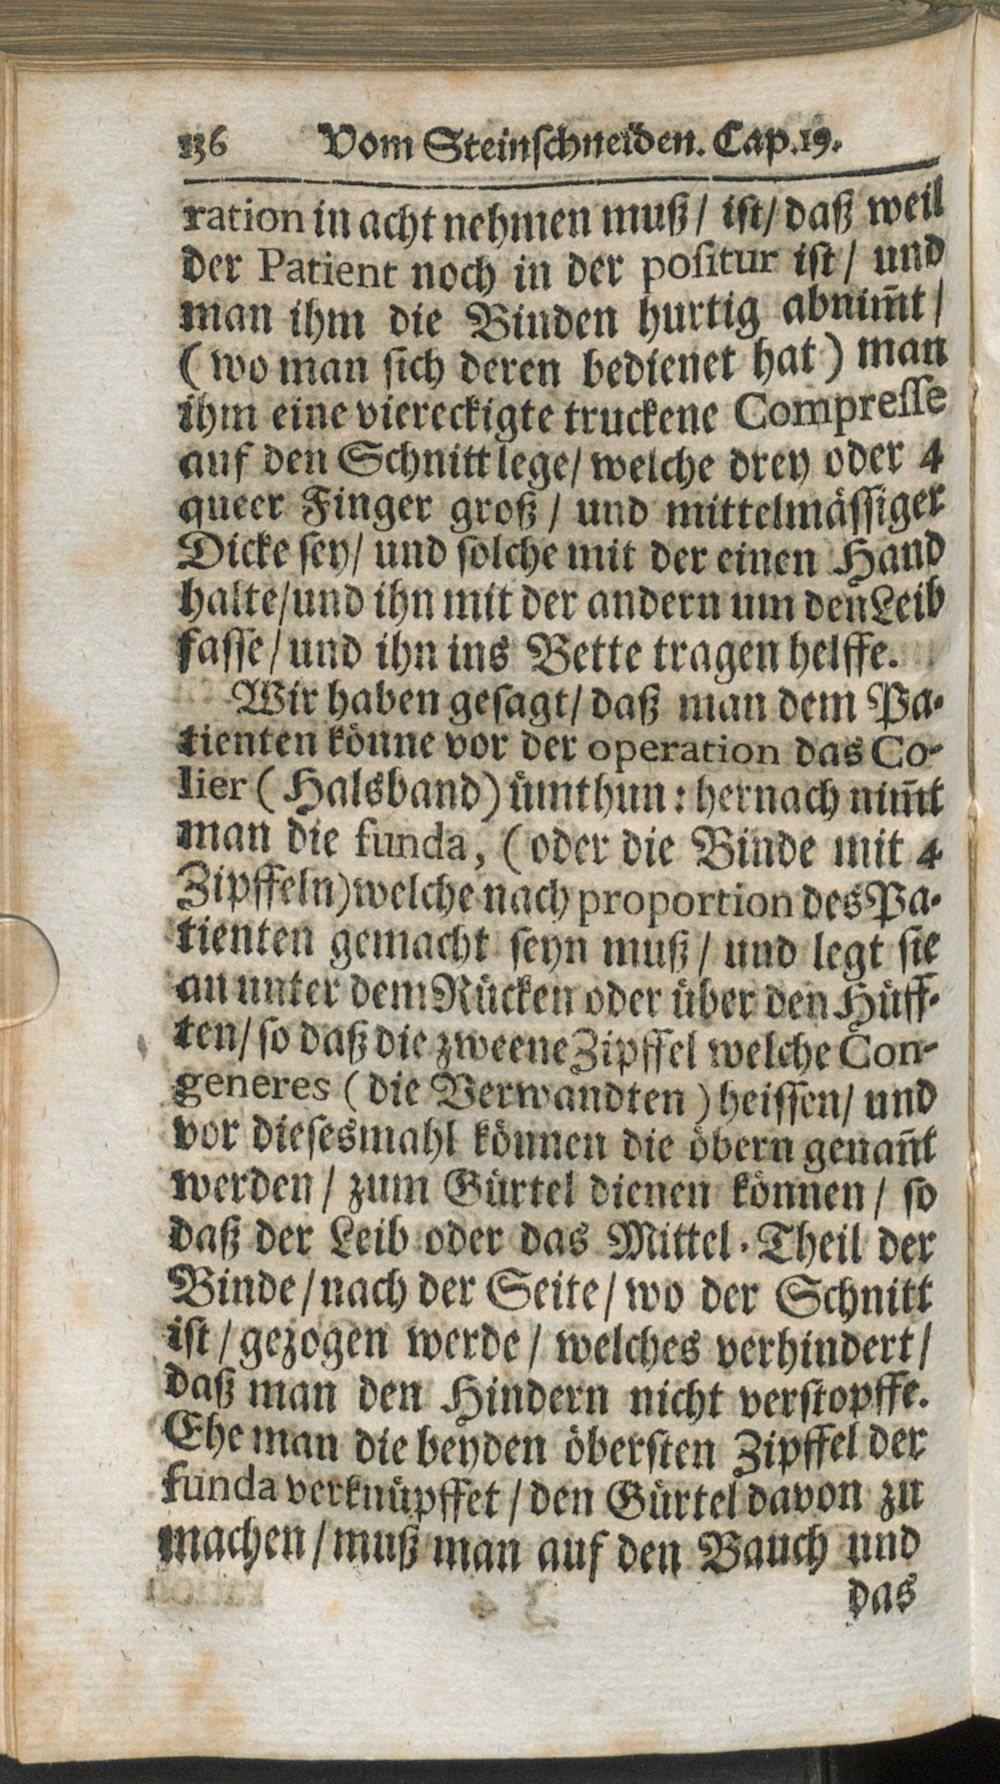 136 Vom Steinschneiden. Cap. 19.
ration in acht nehmen muß / ist / daß weil
der Patient noch in der positur ist / und
man ihm die Binden hurtig abnim̃t /
( wo man sich deren bedienet hat ) man
ihm eine viereckigte truckene Compresse
auf den Schnitt lege / welche drey oder 4
queer Finger groß / und mittelmässiger
Dicke sey / und solche mit der einen Hand
halte / und ihn mit der andern um den Leib
fasse / und ihn ins Bette tragen helffe.
Wir haben gesagt / daß man dem Pa-
tienten könne vor der operation das Co-
lier ( Halsband ) ümthun : hernach nim̃t
man die funda, ( oder die Binde mit 4
Zipffeln ) welche nach proportion des Pa-
tienten gemacht seyn muß / und legt sie
an unter dem Rücken oder über den Hüff-
ten / so daß die zweene Zipffel welche Con-
generes ( die Verwandten ) heissen / und
vor diesesmahl können die öbern genañt
werden / zum Gürtel dienen können / so
daß der Leib oder das Mittel-Theil der
Binde / nach der Seite / wo der Schnitt
ist / gezogen werde / welches verhindert /
daß man den Hindern nicht verstopffe.
Ehe man die beyden öbersten Zipffel der
funda verknüpffet / den Gürtel davon zu
machen / muß man auf den Bauch und
das